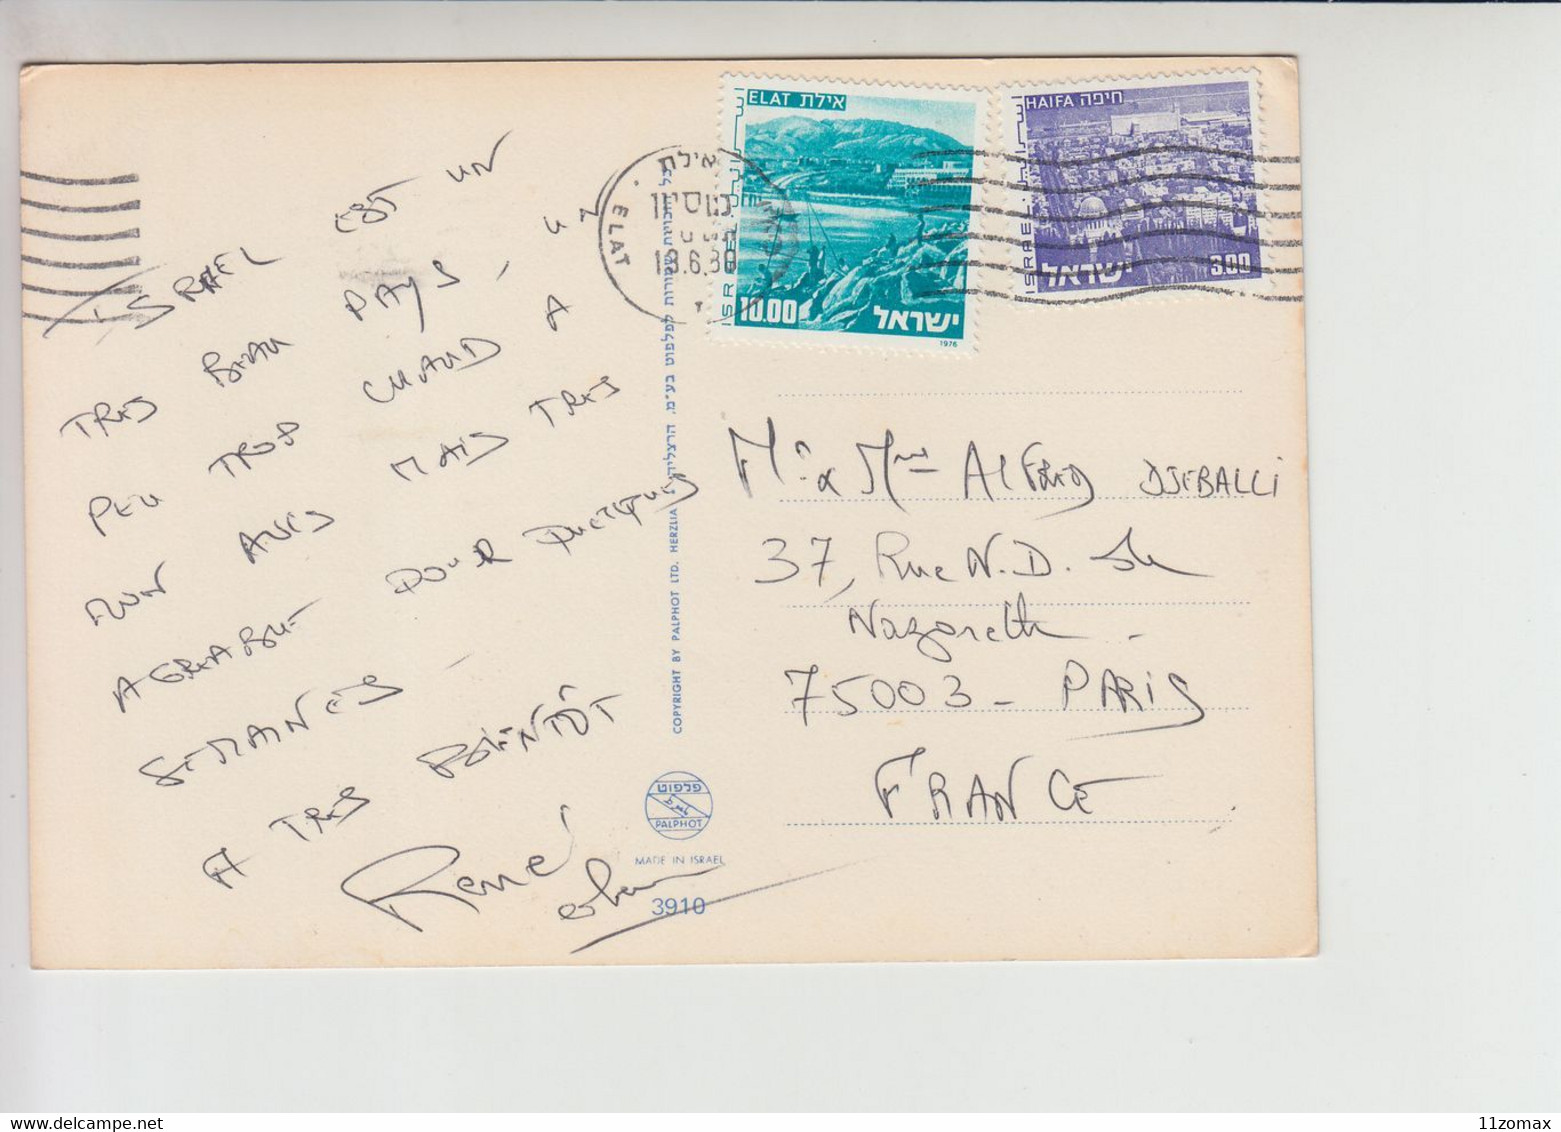 ISRAEL EST UN
TRES BEAU PAYS, UN
PEU TROP CHAUD A
MON AVIS MAIS TRES
AGREABLE POUR QUELQUES
SEMAINES -
A TRES BIENTÔT
René
כל הזכויות שמורות לפלפוט בע"מ, הרצליה
COPYRIGHT BY PALPHOT LTD. HERZLIA
פלפוט
PALPHOT
MADE IN ISRAEL
3910
אילת
ELAT
18.6.80
ELAT אילת
ISRAEL
10.00 ישראל
1976
HAIFA חיפה
ISRAEL
ישראל 3.00
Mr & Mme ALFRED DJEBALLI
37, Rue N.D. de
Nazareth -
75003 - PARIS
FRANCE
11zomax